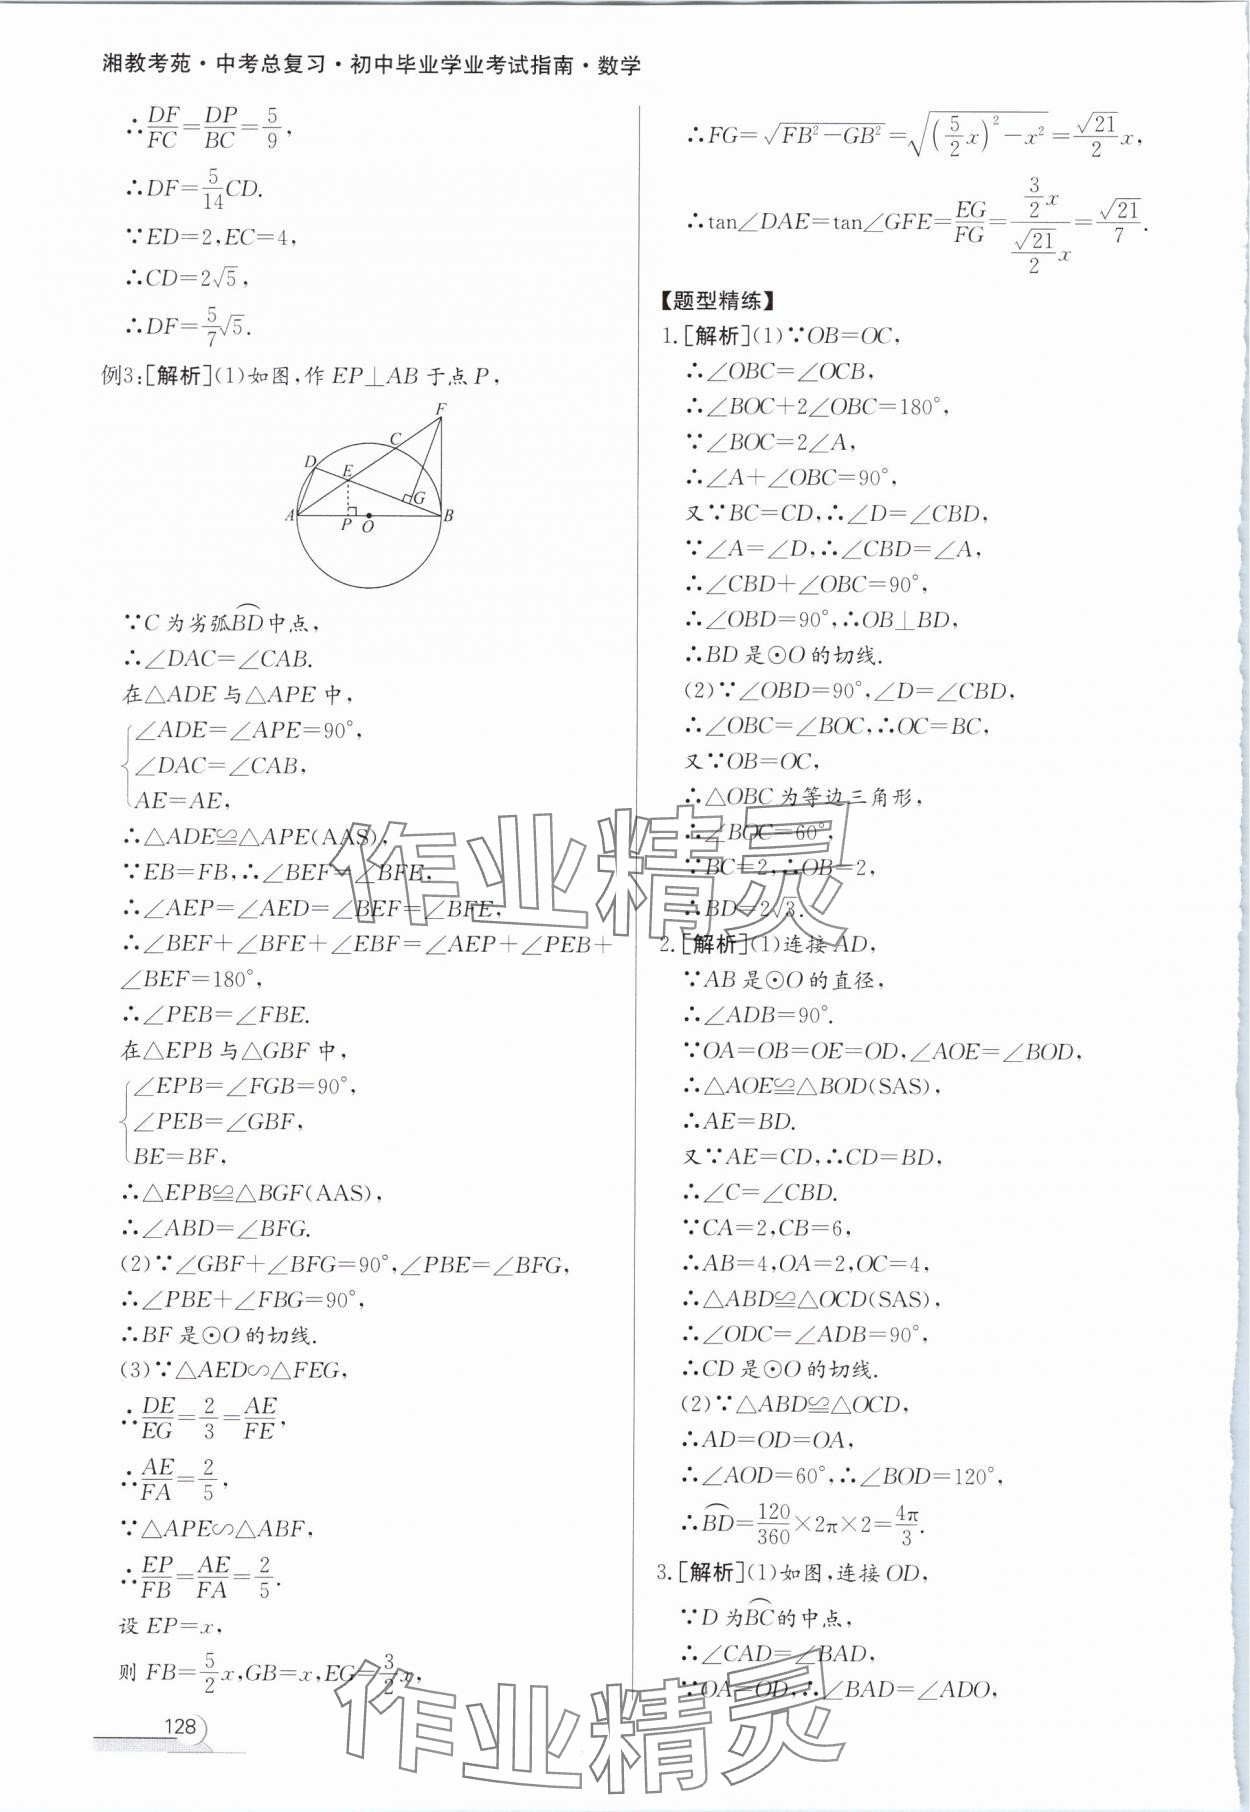 湘教考苑·中考总复习·初中毕业学业考试指南·数学
∴DF/FC=DP/BC=5/9,
∴DF=5/14CD.
∵ED=2,EC=4,
∴CD=2√5,
∴DF=5/7√5.
例3:[解析](1)如图,作EP⊥AB于点P,
F
C
D
E
G
A
P
O
B
∵C为劣弧BD中点,
∴∠DAC=∠CAB.
在△ADE与△APE中,
∠ADE=∠APE=90°,
∠DAC=∠CAB,
AE=AE,
∴△ADE≌△APE(AAS),
∵EB=FB,∴∠BEF=∠BFE,
∴∠AEP=∠AED=∠BEF=∠BFE,
∴∠BEF+∠BFE+∠EBF=∠AEP+∠PEB+
∠BEF=180°,
∴∠PEB=∠FBE.
在△EPB与△GBF中,
∠EPB=∠FGB=90°,
∠PEB=∠GBF,
BE=BF,
∴△EPB≌△BGF(AAS),
∴∠ABD=∠BFG.
(2)∵∠GBF+∠BFG=90°,∠PBE=∠BFG,
∴∠PBE+∠FBG=90°,
∴BF是⊙O的切线.
(3)∵△AED∽△FEG,
∴DE/EG=2/3=AE/FE,
∴AE/FA=2/5,
∵△APE∽△ABF,
∴EP/FB=AE/FA=2/5.
设EP=x,
则FB=5/2x,GB=x,EG=3/2x,
128
∴FG=√(FB²-GB²)=√((5/2x)²-x²)=√21/2x,
∴tan∠DAE=tan∠GFE=EG/FG=(3/2x)/(√21/2x)=√21/7.
【题型精练】
1.[解析](1)∵OB=OC,
∴∠OBC=∠OCB,
∴∠BOC+2∠OBC=180°,
∵∠BOC=2∠A,
∴∠A+∠OBC=90°,
又∵BC=CD,∴∠D=∠CBD,
∵∠A=∠D,∴∠CBD=∠A,
∴∠CBD+∠OBC=90°,
∴∠OBD=90°,∴OB⊥BD,
∴BD是⊙O的切线.
(2)∵∠OBD=90°,∠D=∠CBD,
∴∠OBC=∠BOC,∴OC=BC,
又∵OB=OC,
∴△OBC为等边三角形,
∴∠BOC=60°,
∵BC=2,∴OB=2,
∴BD=2√3.
2.[解析](1)连接AD,
∵AB是⊙O的直径,
∴∠ADB=90°.
∵OA=OB=OE=OD,∠AOE=∠BOD,
∴△AOE≌△BOD(SAS),
∴AE=BD.
又∵AE=CD,∴CD=BD,
∴∠C=∠CBD.
∵CA=2,CB=6,
∴AB=4,OA=2,OC=4,
∴△ABD≌△OCD(SAS),
∴∠ODC=∠ADB=90°,
∴CD是⊙O的切线.
(2)∵△ABD≌△OCD,
∴AD=OD=OA,
∴∠AOD=60°,∴∠BOD=120°,
∴BD=120/360×2π×2=4π/3.
3.[解析](1)如图,连接OD,
∵D为BC的中点,
∴∠CAD=∠BAD,
∵OA=OD,∴∠BAD=∠ADO,
作业精灵
作业精灵